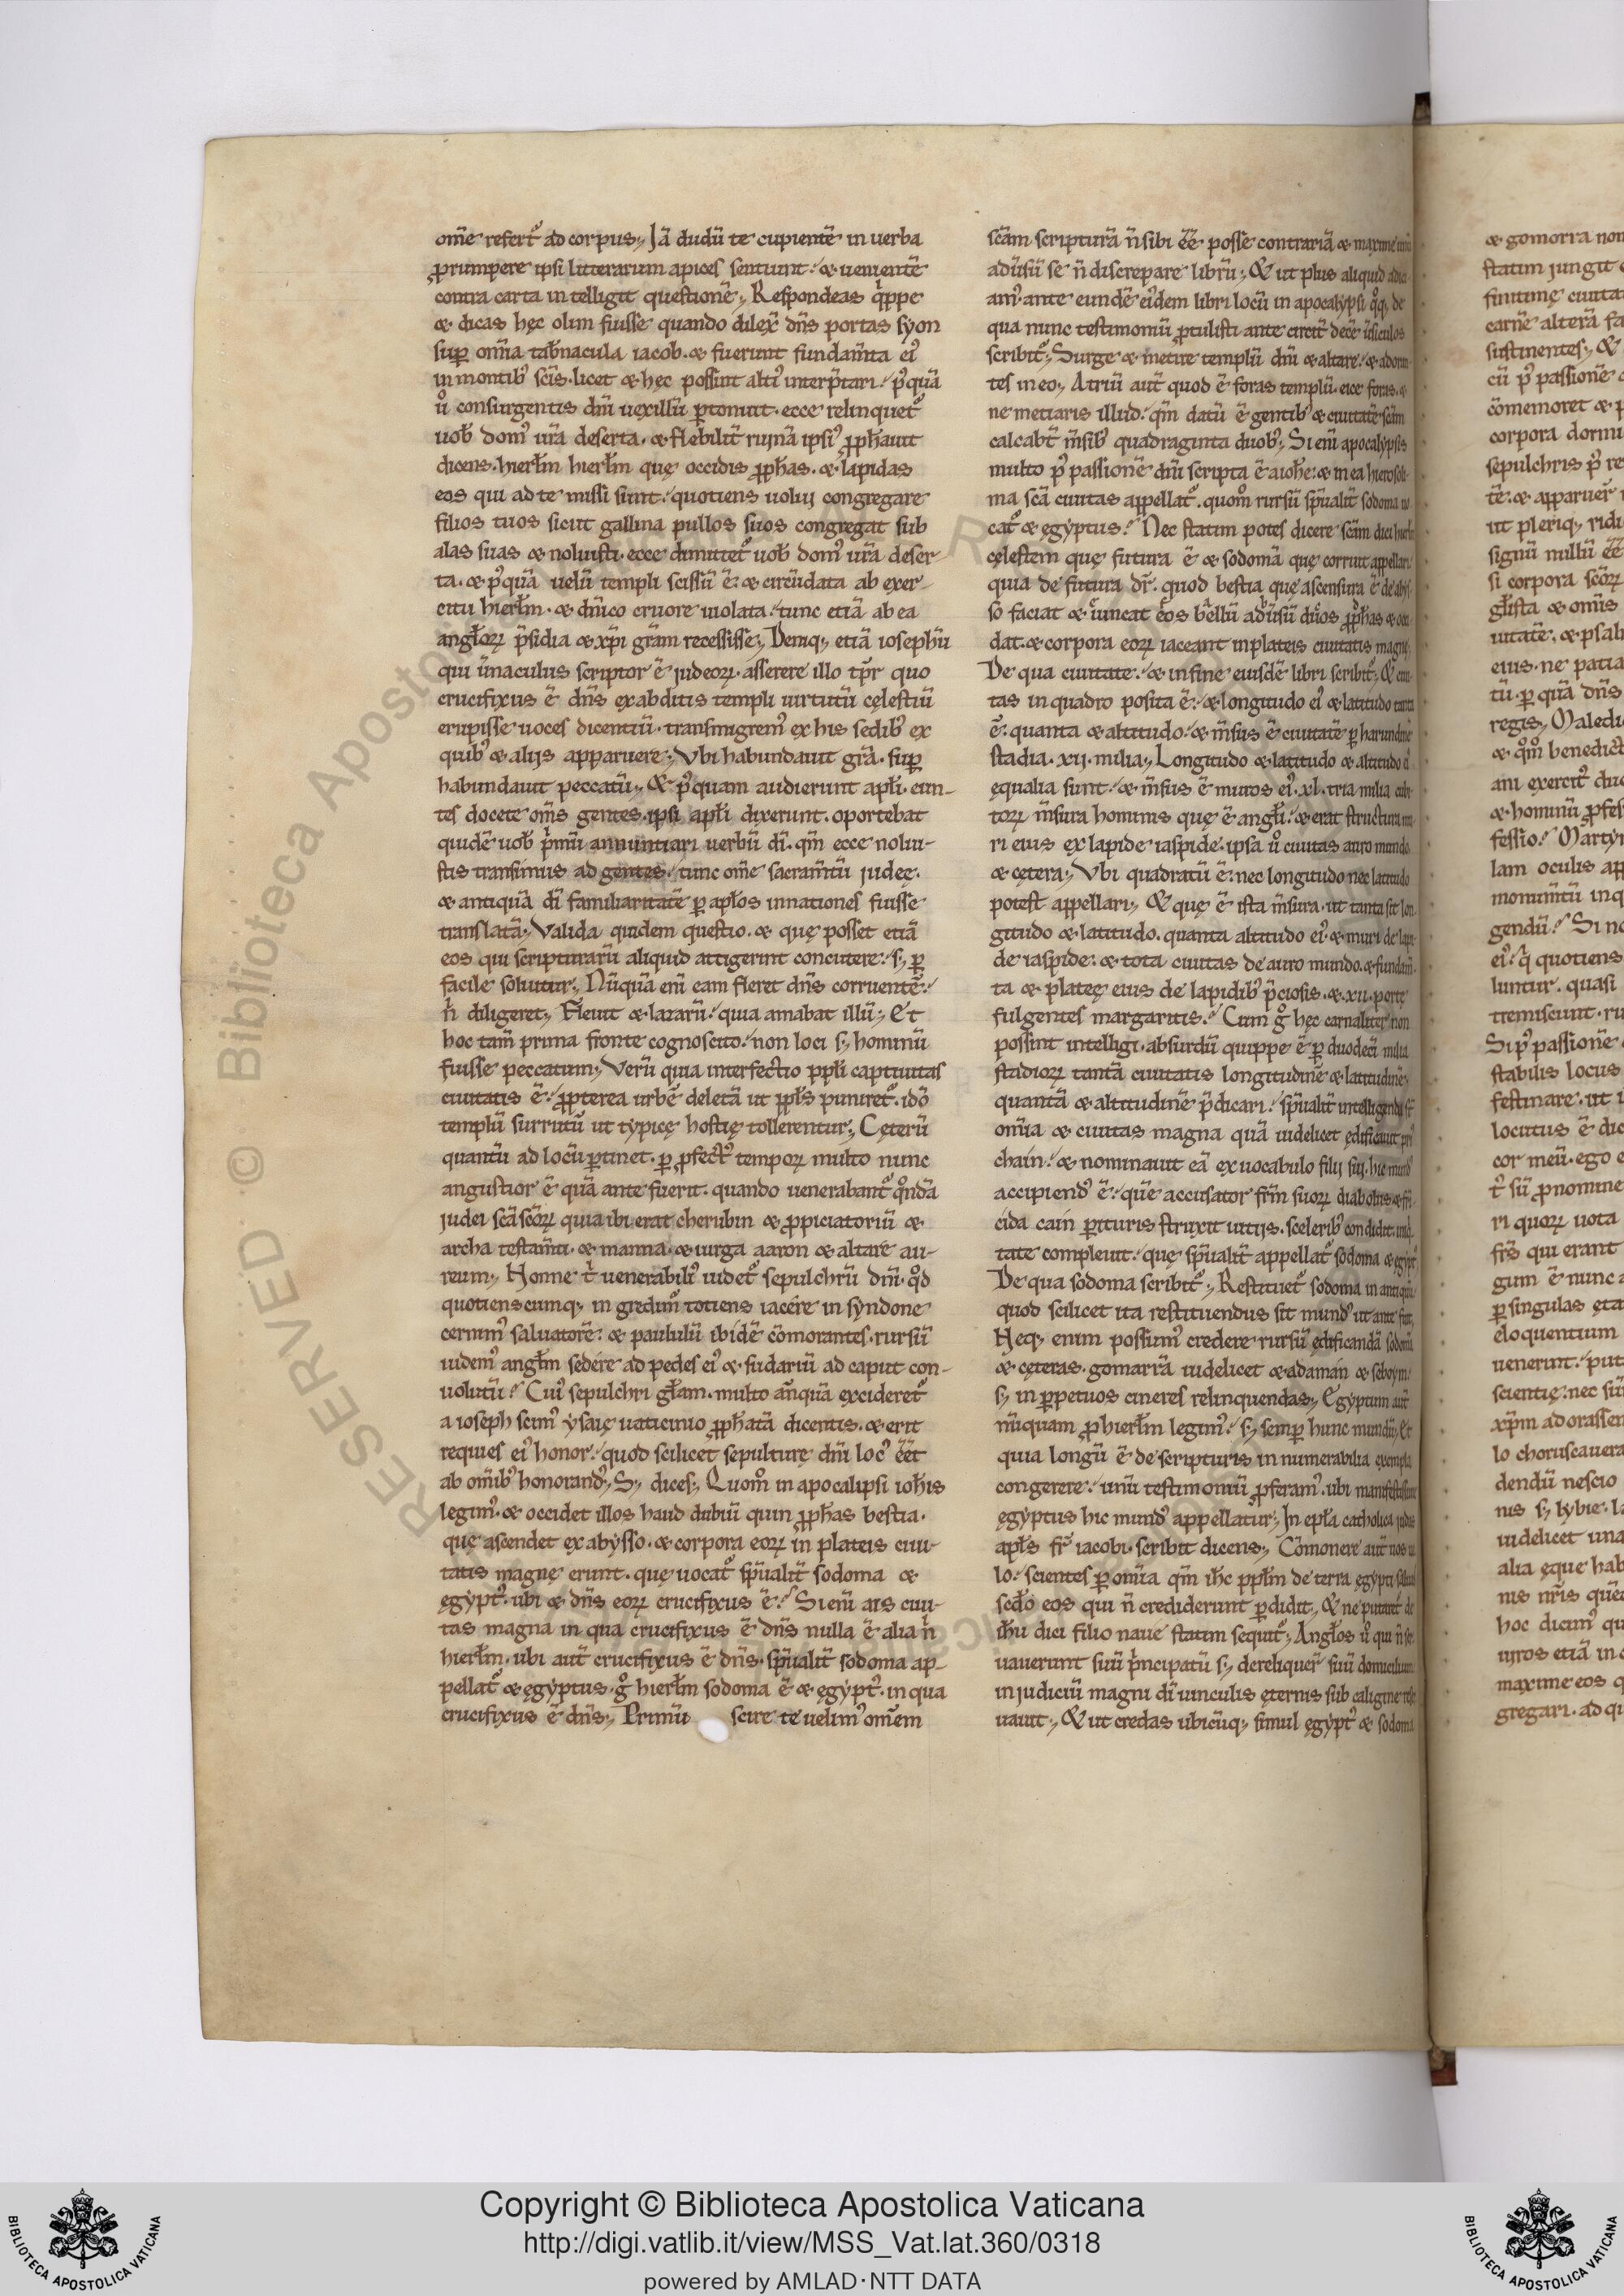 om̃e refert᷑ ad corpus; Iã dudũ te cupientẽ in uerba
ꝓrumpere ipsi litterarum apices sentiunt. & uenientẽ
contra carta intelligit questionẽ; Respondeas q̇ppe
& dicas hęc olim fuisse quando dilex̃ dñs portas syon
suꝑ om̃ia tab̃nacula iacob. & fuerunt fundam̃ta ei᾿
in montib᾿ sc̃is. licet & hęc possint alti᾿ interp̃tari. p᾿quã
ů consurgentis dñi uexillũ ꝑtonuit. ecce relinquet᷑
uob̃ dom᾿ ur̃a deserta. & flebilit̃ ruinã ipsi᾿ ꝓph̃auit
dicens. hierłm hierłm quę occidis ꝓph̃as. & lapidas
eos qui ad te missi sunt. quotiens uolui congregare
filios tuos sicut gallina pullos suos congregat sub
alas suas & noluisti. ecce dimittet᷑ uob̃ dom᾿ ur̃a deser-
ta. & p᾿quã uelũ templi scissũ ẽ. & circũdata ab exer-
citu hierłm. & dñico cruore uiolata. tunc etiã ab ea
angłoꝝ p̃sidia & xp̃i grãm recessisse; Deniq; etiã iosephũ
qui ũnaculus scriptor ẽ iudeoꝝ. asserere illo tp̃r quo
crucifixus ẽ dñs ex abditis templi uirtutũ cęlestiũ
erupisse uoces dicentiũ. transmigrem᾿ ex his sedib᾿ ex
quib᾿ & alijs apparuere; Vbi habundauit grã. suꝑ
habundauit peccatũ; & p᾿quam audierunt apłi. eun-
tes docete om̃s gentes. ipsi apłi dixerunt. oportebat
quidẽ uob̃ p̓mũ annuntiari uerbũ dĩ. qm̃ ecce nolui-
stis transimus ad gentes. tunc om̃e sacram̃tũ iudeę.
& antiquã dĩ familiaritatẽ ꝑ apłos in nationes fuisse
translatã; Valida quidem questio. & quę posset etiã
eos qui scripturarũ aliquid attigerint concutere. s; ꝑ
facile soluitur; Nũquã enĩ eam fleret dñs corruentẽ.
n̓ diligeret; Fleuit & lazarũ. quia amabat illũ; Et
hoc tam̃ prima fronte cognoscito. non loci s; hominũ
fuisse peccatum; Verũ quia interfectio ppłi captiuitas
ciuitatis ẽ. ꝓpterea urbẽ deletã ut ppłs puniret᷑. idõ
templũ surrutũ ut typicę hostię tollerentur; Cęterũ
quantũ ad locũ ꝑtinet. ꝑ ꝓfect᾿ tempoꝝ multo nunc
angustior ẽ quã ante fuerit. quando uenerabant᷑ q̊ndã
iudei scã scõꝝ quia ibi erat cherubin & ꝓpiciatoriũ &
archa testam̃ti. & manna. & uirga aaron & altare au-
reum; Nonne t̓ uenerabili᾿ uidet᷑ sepulchrũ dñi. qd̊
quotienscumq; in gredim᷑ totiens iacére in syndone
cernim᾿ saluatorẽ. & paululũ ibidẽ cõmorantes. rursũ
uidem᾿ angłm sedére ad pedes ei᾿ & sudariũ ad caput con-
uolutũ. Cui᾿ sepulchri głam. multo añquã excideret᷑
a ioseph scim᾿ ysaię uaticinio ꝓph̃atã dicentis. & erit
requies ei᾿ honor. quod scilicet sepulturę dñi loc᾿ ẽẽt
ab omĩb᾿ honorand᾿; S; dices; Quom̊ in apocalipsi ioh̃is
legim᾿. & occidet illos haud dubiũ quin ꝓph̃as bestia.
quę ascendet ex abysso. & corpora eoꝝ in plateis ciui-
tatis magnę erunt. quę uocat᷑ sp̃ualit̃ sodoma &
ęgypt᾿. ubi & dñs eoꝝ crucifixus ẽ. Si enĩ ais ciui-
tas magna in qua crucifixus ẽ dñs nulla ẽ alia n̓
hierłm. ubi aut̃ crucifixus ẽ dñs. sp̃ualit̃ sodoma ap-
pellat᷑ & ęgyptus. g̊ hierłm sodoma ẽ & ęgypt᾿. in qua
crucifixus ẽ dñs; Primũ scire te uelim᾿ om̃em
scãm scripturã ñ sibi ẽẽ posse contrariã & maxime
adũsũ se ñ discrepare librũ; & ut plus aliquid
am᾿. ante eundẽ eĩdem libri locũ in apocalypsi q̊q; de
qua nunc testimoniũ ꝓtulisti ante circit̃ decẽ ũsiculos
scribit᷑; Surge & metire templũ dñi & altare. & adoran
tes in eo; Atriũ aut̃ quod ẽ foras templũ. eice foras. &
ne metiaris illud. qm̃ datũ ẽ gentib᾿ & ciuitatẽ scãm
calcabt̃ m̃sib᾿ quadraginta duob᾿; Si enĩ apocalypsis
multo p᾿ passionẽ dñi scripta ẽ a ioh̃e. & in ea hierosoli
ma scã ciuitas appellat᷑. quom̊ rursũ sp̃ualit̃ sodoma uo
cat᷑ & ęgyptus. Nec statim potes dicere scãm dici
cęlestem quę futura ẽ & sodomã quę corruit appellari
quia de futura dr̃. quod bestia quę ascensura ẽ de abis
so faciat & uincat eos bellũ adũsũ duos ꝓph̃as &
dat. & corpora eoꝝ iaceant in plateis ciuitatis magnę
De qua ciuitate. & in fine eiusdẽ libri scribit᷑; & ciui
tas in quadro posita ẽ. & longitudo ei᾿ & latitudo tanta
ẽ. quanta & altitudo. & m̃sus ẽ ciuitatẽ ꝑ harundinẽ
stadia. xij. milia; Longitudo & latitudo & altitudo
ęqualia sunt. & m̃sus ẽ muros ei᾿. xl. tria milia cubi
toꝝ m̃sura hominis quę ẽ angłi. & erat structura mu
ri eius ex lapide iaspide. ipsa ů ciuitas auro mundo
& cętera; Vbi quadratũ ẽ. nec longitudo nec latitudo
potest appellari; & quę ẽ ista m̃sura. ut tanta sit lon
gitudo & latitudo. quanta altitudo ei᾿. & muri de lapi
de iaspide. & tota ciuitas de auro mundo. & fundam̃
ta & plateę eius de lapidib᾿ p̃ciosis. & xii. portę
fulgentes margaritis. Cum g̊ hęc carnaliter non
possint intelligi. absurdũ quippe ẽ ꝑ duodecĩ milia
stadioꝝ tantã ciuitatis longitudinẽ & latitudinẽ
quantã & altitudinẽ p̃dicari. sp̃ualit̃ intelligenda st̃
om̃ia & ciuitas magna quã uidelicet ędificauit
chain. & nominauit eã ex uocabulo filij sui. hic mund᾿
accipiend᾿ ẽ. quẽ accusator fr̃m suoꝝ diabolus &
cida cain ꝑituris struxit uitijs. sceleribꝰ condidit
tate compleuit. quę sp̃ualit̃ appellat᷑ sodoma & ęgypt᾿
De qua sodoma scribit᷑; Restituet᷑ sodoma in
quod scilicet ita restituendus sit mund᾿ ut ante fuit
Neq; enim possum᾿ credere rursũ ędificandã sodomã
& cęteras. gomarrã uidelicet & adamán & seboym
s; in ꝑpetuos cineres relinquendas; Egyptum aut̃
nũquam ꝓ hierłm legim᾿. s; semꝑ hunc mundũ; Et
quia longũ ẽ de scripturis innumerabilia exempla
congerere. unũ testimoniũ ꝓferam᾿. ubi manifestissime
ęgyptus hic mund᾿ appellatur; In epła catholica iudas
apłs fr̃ iacobi. scribit dicens; Cõmonere aut̃ nos
lo. scientes ꝑ om̃ia qm̃ ih̃c ppłm de terra ęgypti saluans
scđo eos qui ñ crediderunt ꝑdidit; & ne putarent de
ih̃u dici filio naue statim sequit᷑; Angłos ů qui ñ ser
uauerunt suũ p̓ncipatũ s; dereliquer̃ suũ domicilium
in iudiciũ magni dĩ uinculis ęternis sub caligine
uauit; & ut credas ubicũq; simul ęgypt᾿ & sodoma
& gomorra non
statim iungit
finitimę ciuita
carnẽ alterã
sustinentes; &
cũ p᾿ passionẽ
cõmemoret &
corpora dormi
sepulchris p᾿ re
tẽ. & apparuer̃
ut pleriq; ridi
signũ nullũ ẽẽ
si corpora scõꝝ
uitatẽ. & psal
eius. ne patia
tũ. ꝑ quã dñs
regis; Maledi
& q̊m̊ benedict
ani exercit᾿ duc
& hominũ ꝓfes
fessio. Martyr
lam oculis app
monum̃tũ in q
gendũ. Si no
ei᾿. q̓ quotiens
luntur. quasi
tremiscunt. ru
Si p᾿ passionẽ
stabilis locus
festinare. ut
locutus ẽ dic
cor meũ. ego
t̓ sũ ꝓ nomine
ri quoꝝ uota
fr̃s qui erant
gum ẽ nunc
ꝑ singulas ęta
eloquentium
uenerint. put
scientię. nec sũ
xp̃m adorassen
lo choruscauera
dendũ nescio
nis s; lybie.
uidelicet una
alia ęque hab
nis nr̃is quẽ
hoc dicim᾿ qu
uiros etiã in
maxime eos q
gregari. ad qu
RESERVED © Biblioteca Apostolica Vaticana
Copyright © Biblioteca Apostolica Vaticana
http://digi.vatlib.it/view/MSS_Vat.lat.360/0318
powered by AMLAD·NTT DATA
BIBLIOTECA APOSTOLICA VATICANA
BIBLIOTECA APOSTOLICA VATICANA